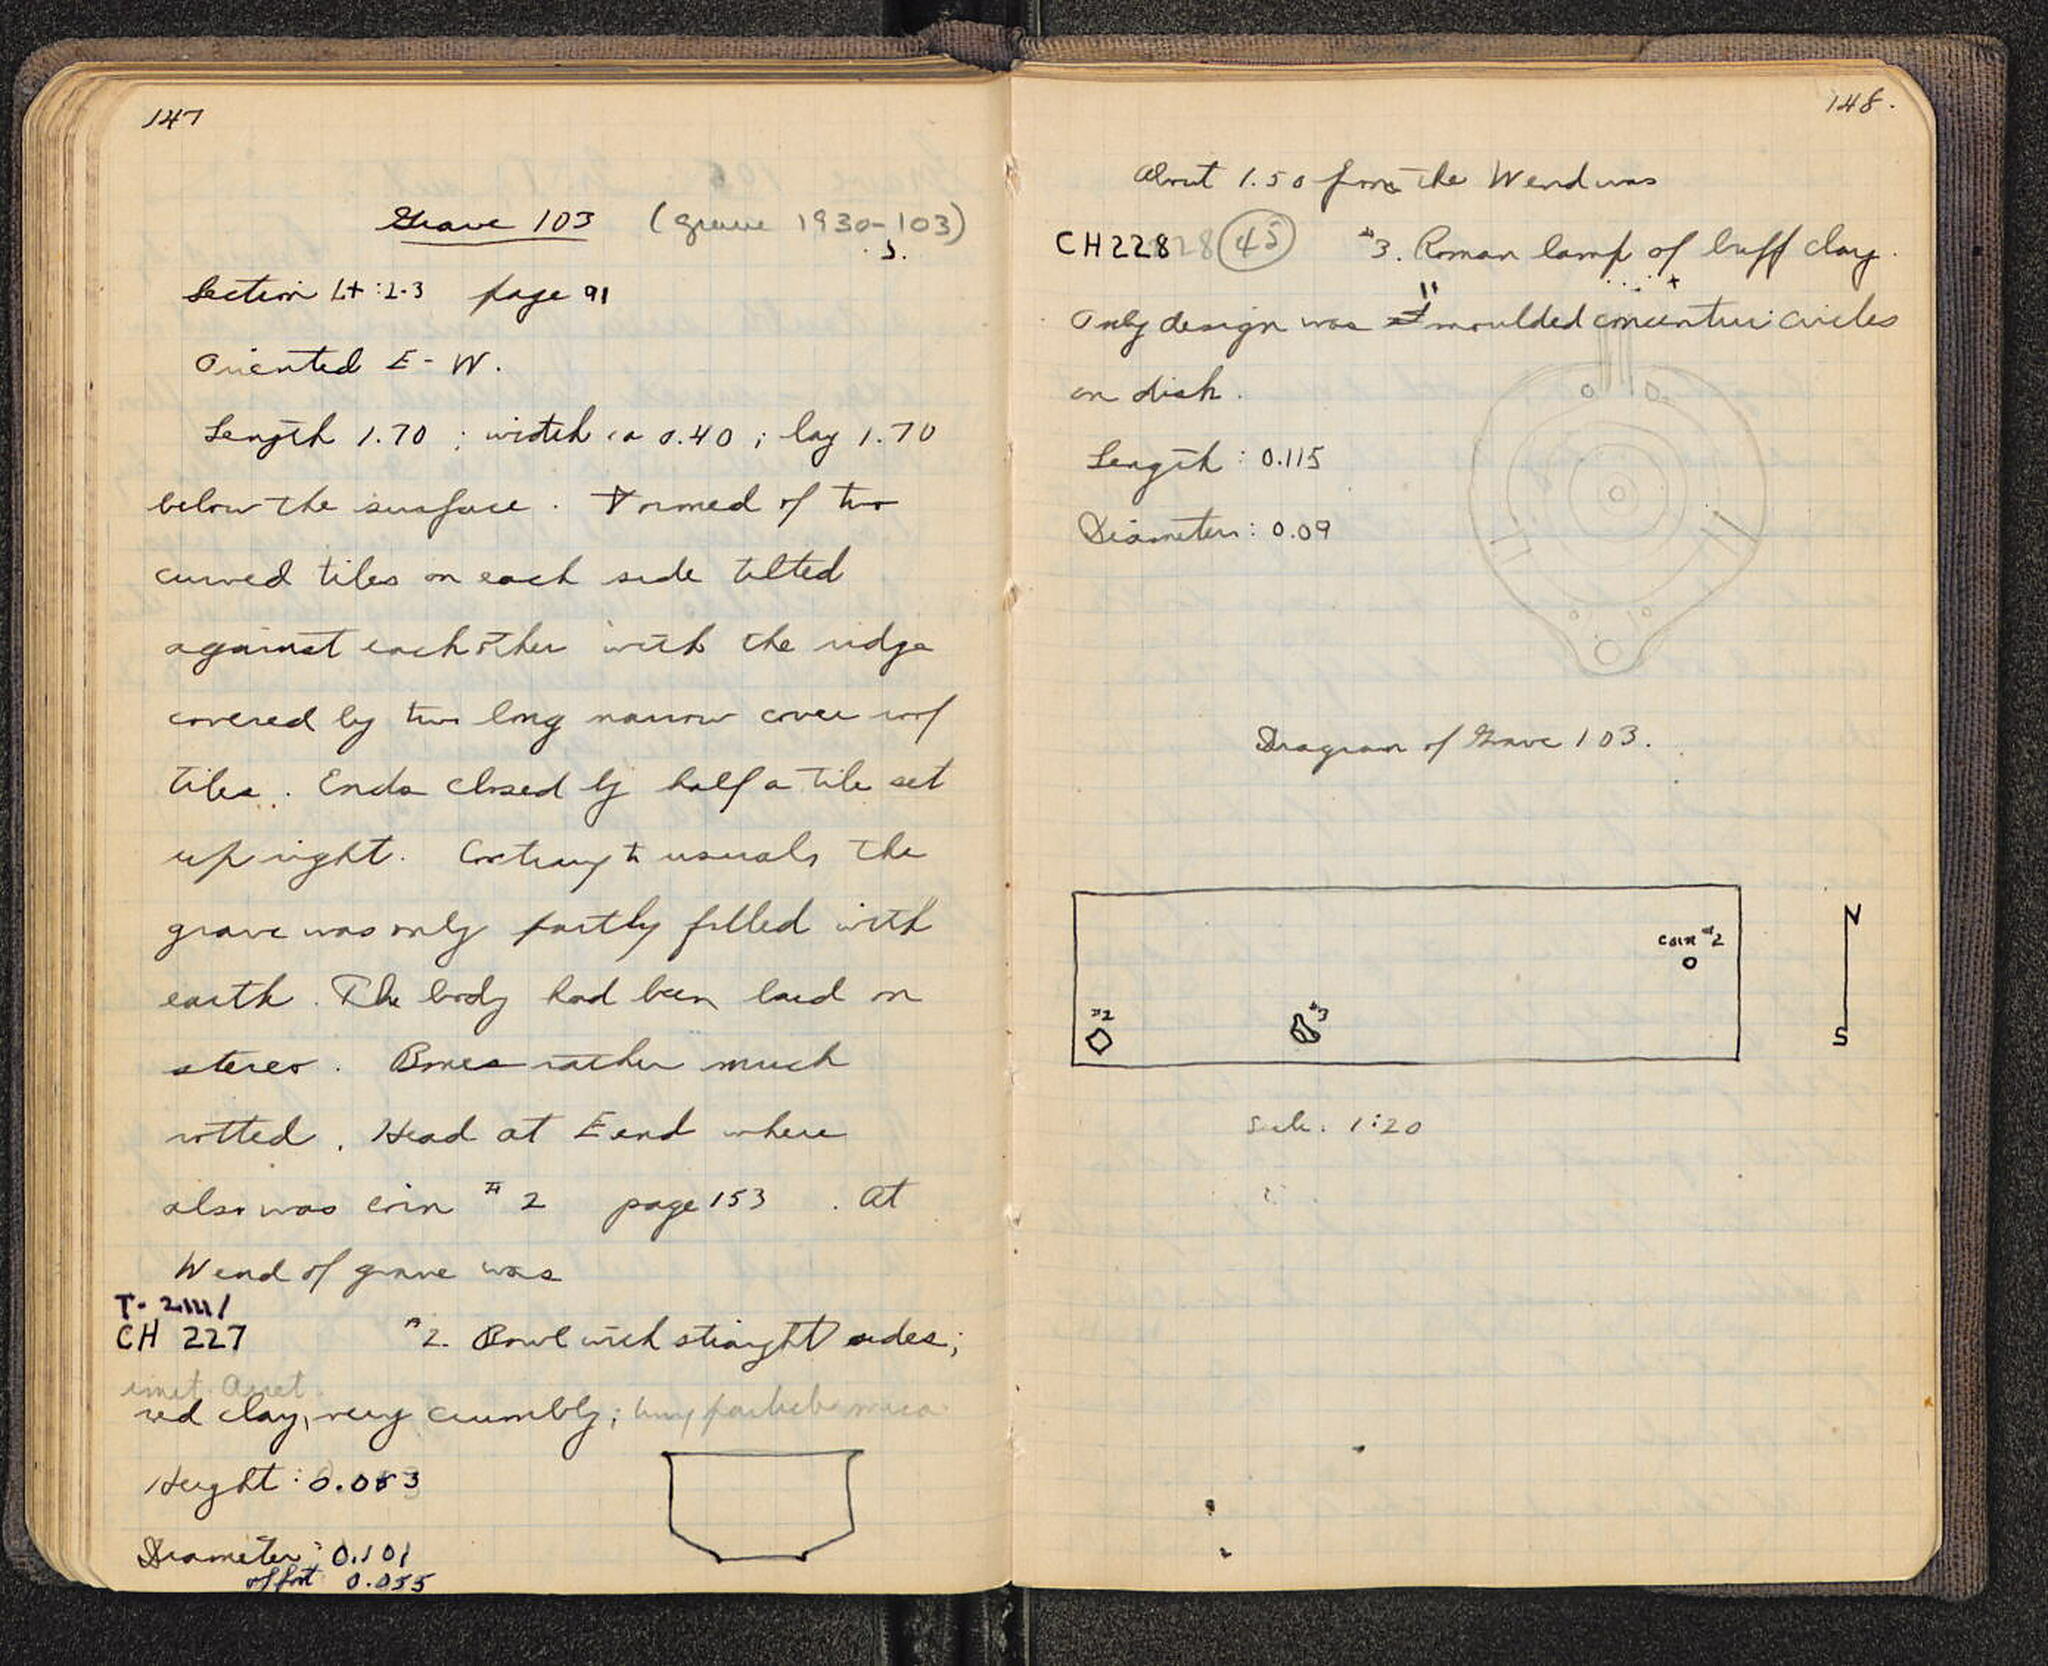 147
Grave 103 (grave 1930-103)
Section L+:2-3 page 91
Oriented E-W.
Length 1.70; width ca 0.40; lay 1.70
below the surface. Formed of two
curved tiles on each side tilted
against each other with the ridge
covered by two long narrow cover roof
tiles. Ends closed by half a tile set
up right. Contrary to usuals the
grave was only partly filled with
earth. The body had been laid on
stereo. Bones rather much
rotted. Head at E end where
also was coin #2 page 153. At
W end of grave was
CH 227 #2. Bowl with straight sides;
red clay, very crumbly; tiny particles mica
Height: 0.053
Diameter: 0.101
of foot 0.055
148.
About 1.50 from the W end was
CH228 45 #3. Roman lamp of buff clay.
Only design was moulded concentric circles
on disk.
Length: 0.115
Diameter: 0.09
Diagram of Grave 103.
coin #2
#2
#3
N
S
Scale: 1:20